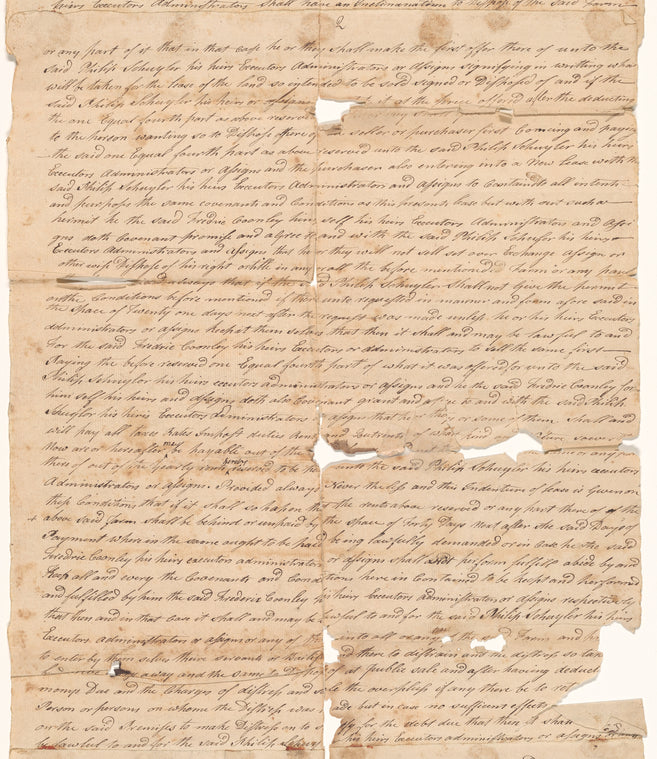 heirs Executors Administrators Shall have an Inclananation to Dispose of the Said Farm
2
or any part of it that in that case he or they shall make the first offer there of unto the
said Philip Schuyler his heirs Executors Administrators or assigns signifying in writting what
will be taken for the lease of the land so intended to be sold signed or Disposed of and if the
said Philip Schuyler his heirs or assigns it at the price offerd after the deducting
the one Equal fourth part as above reserved
to the person wanting so to Dispose seller or purchaser first Comeing and paying
the said one Equal fourth part as above reserved unto the said Philip Schuyler his heirs
Executors Administrators or assigns and the purchaser also entering into a New lease with the
said Philip Schuyler his heirs Executors Administrators and assigns to all intents
and purposes the same covenants and Conditions as this present lease but with out such a
the said Fredric Coonley him self his heirs Executors Administrators and assi
gns doth Covenant promise and agree to and with the said Philip Schuyler his heirs
Executors Administrators and assigns that he or they will not sell set over Exchange assign or
other wise Dispose of his right or title in any the before mentioned Farm or any part
always that if the said Philip Schuyler Shall not give the permit
on the Conditions before mentioned if the unto requested in manner and form afore said in
the Space of Twenty one days next after the request was made unless he or his heirs Executors
administrators or assigns Keep it them selves that then it shall and may be lawful to and
For the said Fredric Coonley his heirs Executors or administrators to sell the same first
Paying the before reserved one Equal fourth part of what it was afford for unto the said
Philip Schuyler his heirs executors administrators or assigns and he the said Fredric Coonley for
him self his heirs and assigns doth also covenant grant and agree to and with the said Philip
Schuyler his heirs Executors administrators or assigns that he or they or some of them Shall and
will pay all taxes Rates Impost duties
Now are or hereafter may be payable out of the
these of out of the yearly rent hereby reserved to be unto the said Philip Schuyler his heirs executors
Administrators or assigns. Provided always Never the less and this Indenture of lease is Given on
these Conditions that if it shall so happen that the rents above reserved or any part there of of the
above said farm shall be behind or unpaid by the space of Forty Days Next after the said Days of
Payment where in the same ought to be paid being lawfully demanded or in case he the said
Fredric Coonley his heirs executors administrators or assigns shall not perform fulfill abide by and
Keep all and every the Covenants and Conditions here in Contained to be kept and performed
and fulfilled by him the said Frederic Coonley his heirs executors administrators or assigns respectively
that then and in that case it shall and may be lawful to and for the said Philip Schuyler his heirs
Executors administrators or assigns or any of them into all or any of the said Farm and
to enter by them selves their servants or Bailiffs and there to distrain and the distress so taken
away and the same to Dispose of at public sale and after having deduct
moneys Due and the Charges of distress and sale the overplush if any there be to ret
Person or persons on whome the Distress was made but in case no sufficient effects
on the said Premises to make Distress on to for the debt due that then it shall
be lawful to and for the said Philip Schuyler his heirs Executors administrators or assigns